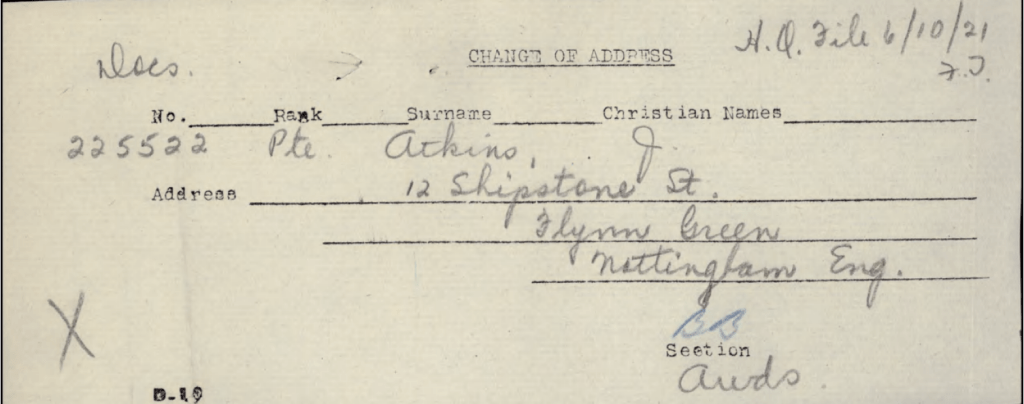 H.Q. File 6/10/21
Docs. CHANGE OF ADDRESS
F.J.
No. Rank Surname Christian Names
225522 Pte. Atkins, J.
Address 12 Shipstone St.
Flynn Green
Nottingham Eng.
BB
Section
Awds.
D-19